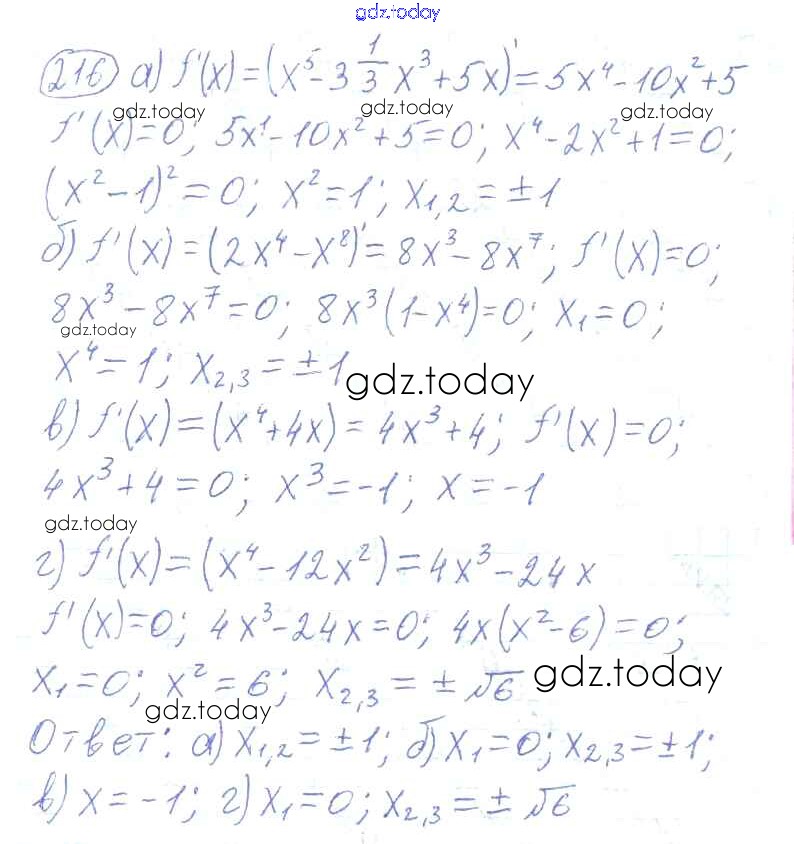 gdz.today
216 а) f'(x) = (x⁵ - 3 1/3 x³ + 5x)' = 5x⁴ - 10x² + 5
gdz.today gdz.today gdz.today
f'(x)=0; 5x⁴ - 10x² + 5 = 0; x⁴ - 2x² + 1 = 0;
(x² - 1)² = 0; x² = 1; x₁,₂ = ± 1
б) f'(x) = (2x⁴ - x⁸)' = 8x³ - 8x⁷; f'(x) = 0;
8x³ - 8x⁷ = 0; 8x³(1 - x⁴) = 0; x₁ = 0;
gdz.today
x⁴ = 1; x₂,₃ = ± 1
gdz.today
в) f'(x) = (x⁴ + 4x) = 4x³ + 4; f'(x) = 0;
4x³ + 4 = 0; x³ = -1; x = -1
gdz.today
г) f'(x) = (x⁴ - 12x²) = 4x³ - 24x
f'(x) = 0; 4x³ - 24x = 0; 4x(x² - 6) = 0;
x₁ = 0; x² = 6; x₂,₃ = ± √6 gdz.today
gdz.today
Ответ: а) x₁,₂ = ± 1; б) x₁ = 0; x₂,₃ = ± 1;
в) x = -1; г) x₁ = 0; x₂,₃ = ± √6